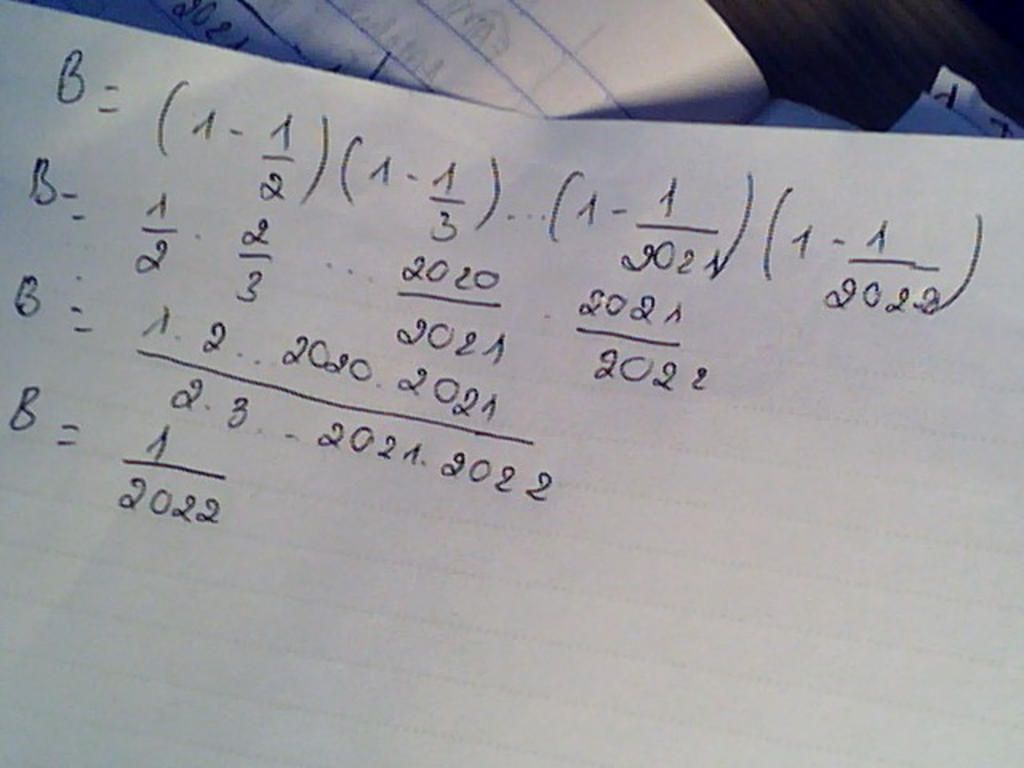 2021
B = (1 - 1/2)(1 - 1/3)...(1 - 1/2021)(1 - 1/2022)
B = 1/2 . 2/3 ... 2020/2021 . 2021/2022
B = 1.2...2020.2021 / 2.3...2021.2022
B = 1/2022